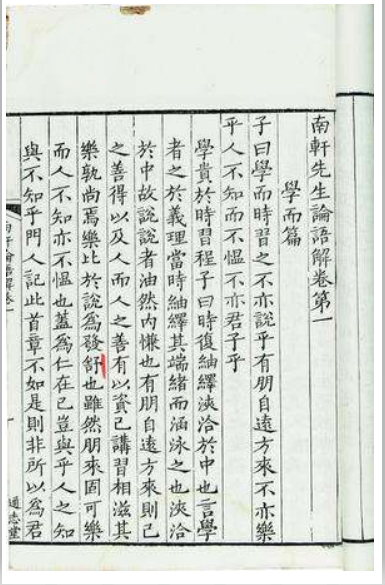 南軒先生論語解卷第一
學而篇
子曰學而時習之不亦說乎有朋自遠方來不亦樂
乎人不知而不愠不亦君子乎
學貴於時習程子曰時復紬繹浹洽於中也言學
者之於義理當時紬繹其端緒而涵泳之也浹洽
於中故說說者油然内慊也有朋自遠方來則己
之善得以及人而人之善有以資己講習相滋其
樂孰尚焉樂比於說為發舒也雖然朋來固可樂
而人不知亦不愠也蓋為仁在己豈與乎人之知
與不知乎門人記此首章不如是則非所以為君
南軒論語解卷一
一
通志堂